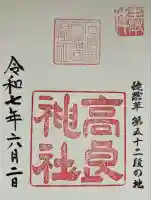 徒然草 第五十二段の地
高良
神社
令和七年六月二日